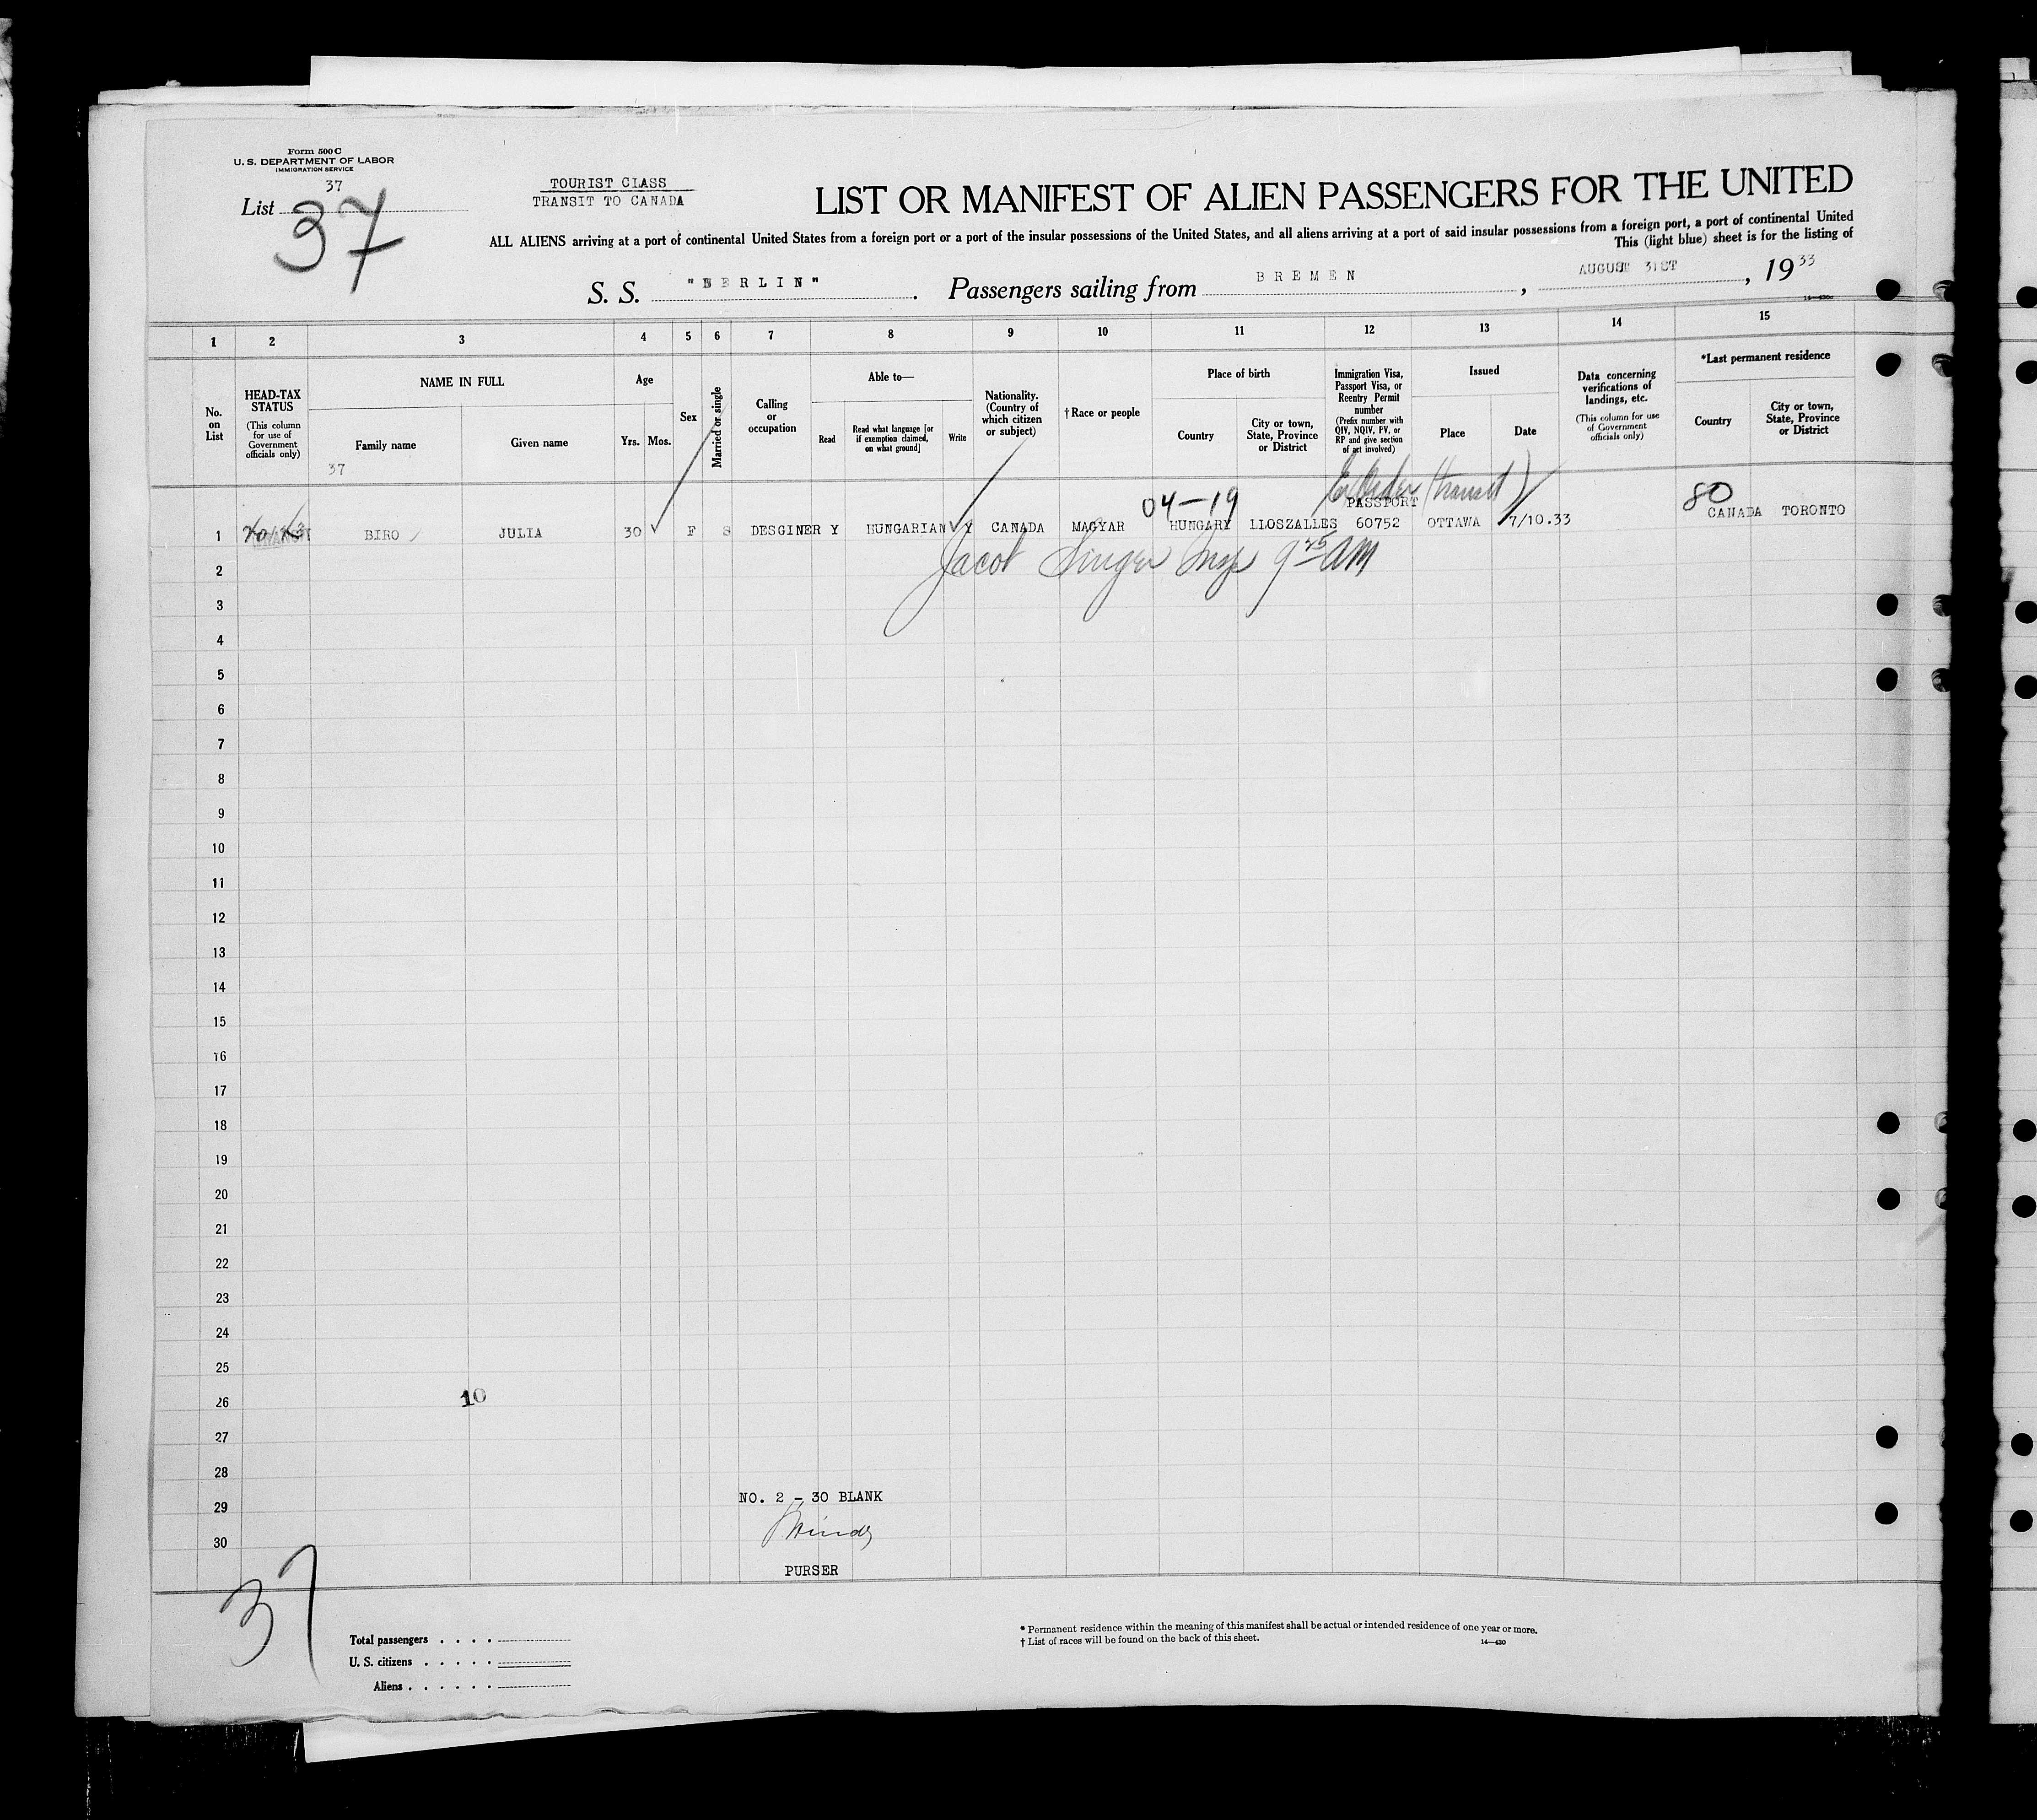 Form 500 C
U. S. DEPARTMENT OF LABOR
IMMIGRATION SERVICE
37
List
37
TOURIST CLASS
TRANSIT TO CANADA
LIST OR MANIFEST OF ALIEN PASSENGERS FOR THE UNITED
ALL ALIENS arriving at a port of continental United States from a foreign port or a port of the insular possessions of the United States, and all aliens arriving at a port of said insular possessions from a foreign port, a port of continental United
This (light blue) sheet is for the listing of
S. S. "BERLIN". Passengers sailing from BREMEN, AUGUST 31ST, 1933
14—430
1 2 3 4 5 6 7 8 9 10 11 12 13 14 15
No. on List
HEAD-TAX STATUS (This column for use of Government officials only)
NAME IN FULL
Family name
Given name
Age
Yrs. Mos.
Sex
Married or single
Calling or occupation
Able to—
Read
Read what language [or if exemption claimed, on what ground]
Write
Nationality. (Country of which citizen or subject)
† Race or people
Place of birth
Country
City or town, State, Province or District
Immigration Visa, Passport Visa, or Reentry Permit number (Prefix number with QIV, NQIV, PV, or RP and give section of act involved)
Issued
Place
Date
Data concerning verifications of landings, etc. (This column for use of Government officials only)
*Last permanent residence
Country
City or town, State, Province or District
37
04-19
(transit)
80
PASSPORT
1 BIRO JULIA 30 F S DESGINER Y HUNGARIAN Y CANADA MAGYAR HUNGARY LLOSZALLES 60752 OTTAWA 7/10.33 CANADA TORONTO
Jacob Singer Insp 9 25 AM
2
3
4
5
6
7
8
9
10
11
12
13
14
15
16
17
18
19
20
21
22
23
24
25
26
10
27
28
29
NO. 2 - 30 BLANK
30
PURSER
37
Total passengers
U. S. citizens
Aliens
* Permanent residence within the meaning of this manifest shall be actual or intended residence of one year or more.
† List of races will be found on the back of this sheet.
14—430